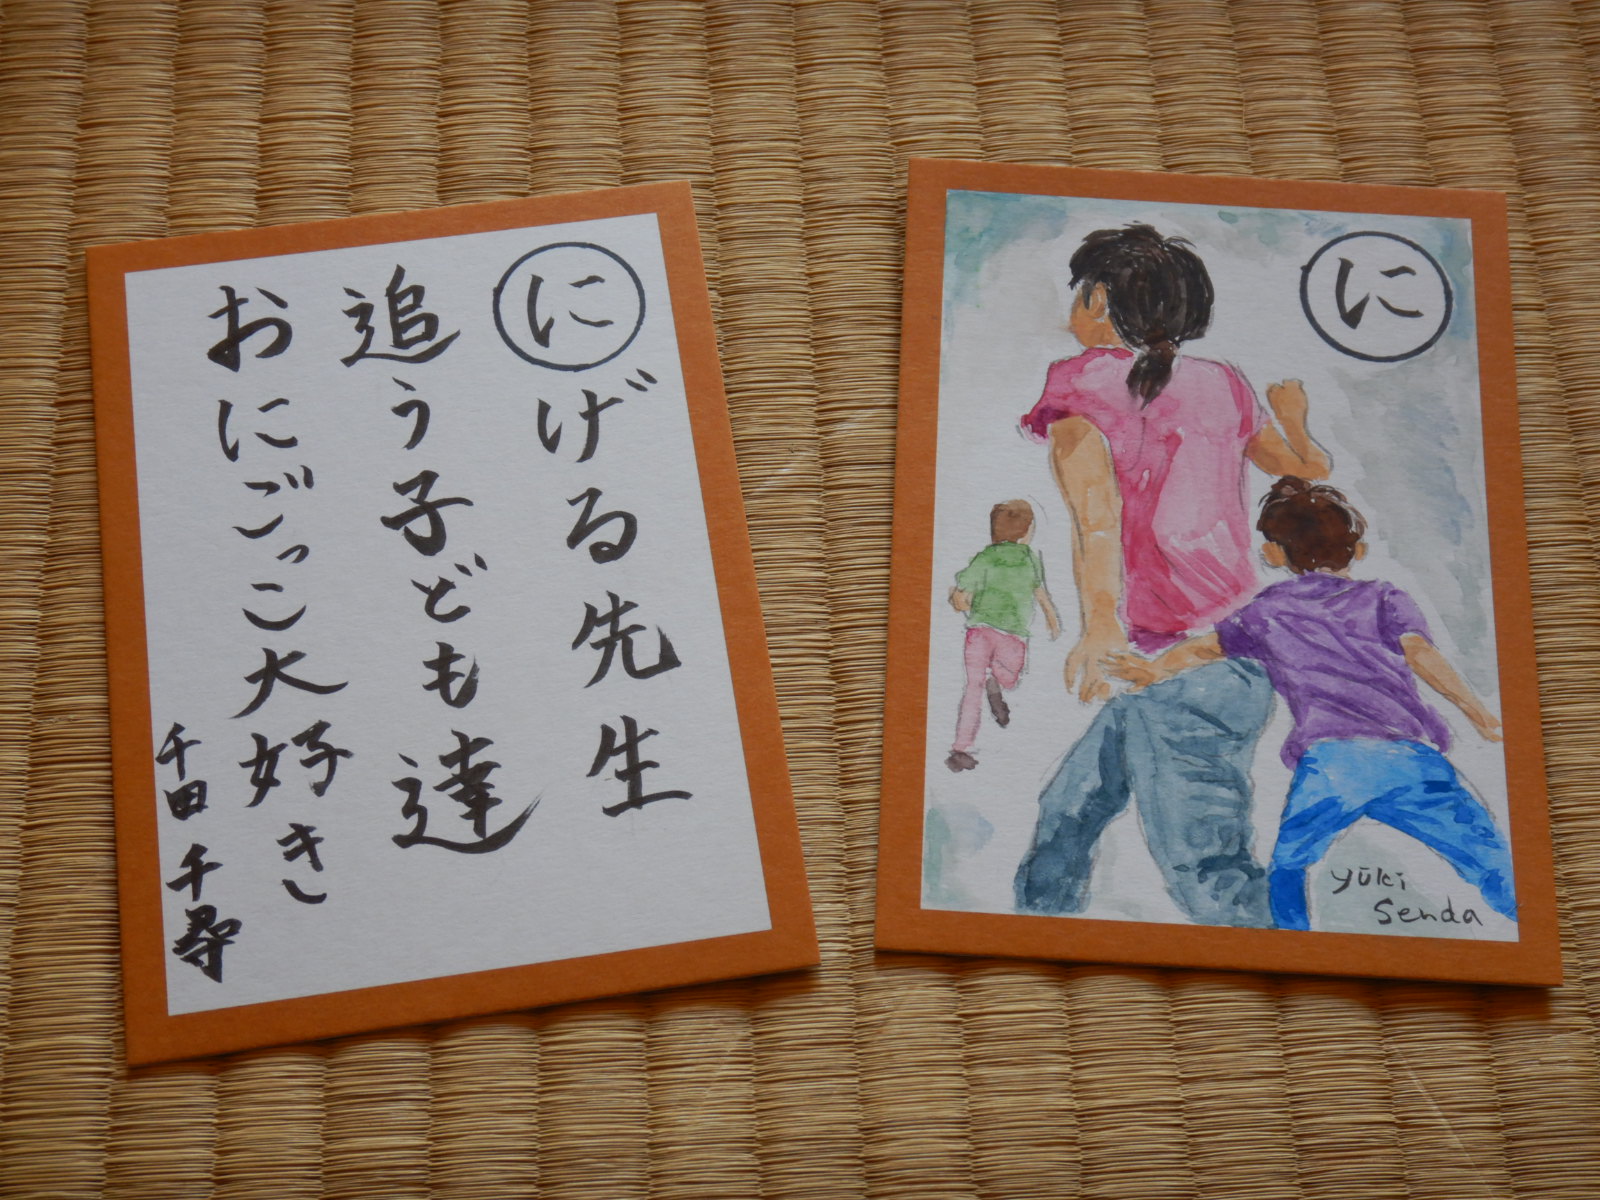 にげる先生
追う子ども達
おにごっこ大好き
千田千尋
に
yūki
Senda